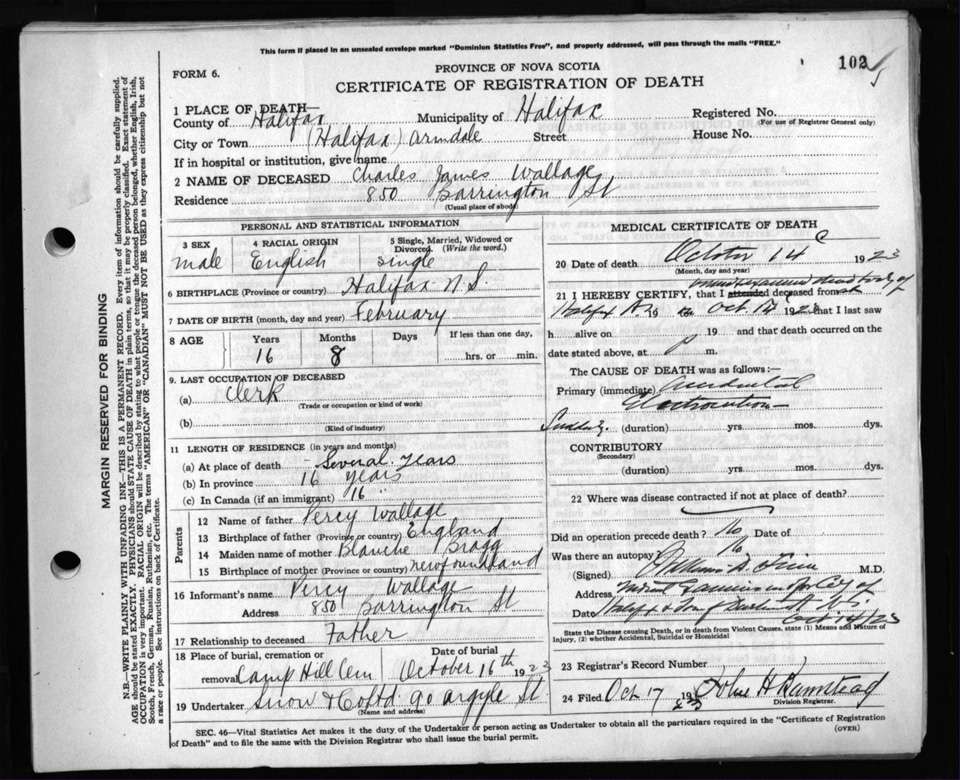 This form if placed in an unsealed envelope marked "Dominion Statistics Free", and properly addressed, will pass through the mails "FREE."
102
5
FORM 6.
PROVINCE OF NOVA SCOTIA
CERTIFICATE OF REGISTRATION OF DEATH
1 PLACE OF DEATH—
County of Halifax Municipality of Halifax Registered No.
(For use of Registrar General only)
City or Town (Halifax) Armdale Street House No.
If in hospital or institution, give name
2 NAME OF DECEASED Charles James Wallage
Residence 850 Barrington St
(Usual place of abode)
PERSONAL AND STATISTICAL INFORMATION
3 SEX 4 RACIAL ORIGIN 5 Single, Married, Widowed or Divorced. (Write the word.)
male English single
6 BIRTHPLACE (Province or country) Halifax N.S.
7 DATE OF BIRTH (month, day and year) February
8 AGE Years Months Days If less than one day,
16 8 hrs. or min.
9. LAST OCCUPATION OF DECEASED
(a) Clerk
(Trade or occupation or kind of work)
(b)
(Kind of industry)
11 LENGTH OF RESIDENCE (in years and months)
(a) At place of death Several years
(b) In province 16 years
(c) In Canada (if an immigrant) 16 "
Parents
12 Name of father Percy Wallage
13 Birthplace of father (Province or country) England
14 Maiden name of mother Blanche Bragg
15 Birthplace of mother (Province or country) Newfoundland
16 Informant's name Percy Wallage
Address 850 Barrington St
17 Relationship to deceased Father
18 Place of burial, cremation or removal Camp Hill Cem Date of burial October 16th 1923
19 Undertaker Snow & Co Ltd 90 Argyle St.
(Name and address)
MEDICAL CERTIFICATE OF DEATH
20 Date of death October 14 1923
(Month, day and year)
21 I HEREBY CERTIFY, that I attended deceased from
Halifax Oct. 14 1923 that I last saw
h alive on 19 and that death occurred on the
date stated above, at P m.
The CAUSE OF DEATH was as follows:-
Primary (immediate) Accidental
Electrocution
(duration) yrs. mos. dys.
CONTRIBUTORY
(Secondary)
(duration) yrs. mos. dys.
22 Where was disease contracted if not at place of death?
Did an operation precede death? No Date of
Was there an autopsy No
(Signed) M.D.
Address Medical Examiner City of
Date Halifax Dartmouth N.S. Oct 14/23
State the Disease causing Death, or in death from Violent Causes, state (1) Means and Nature of
Injury, (2) whether Accidental, Suicidal or Homicidal
23 Registrar's Record Number
24 Filed Oct 17 1923 John H
Division Registrar.
SEC. 46—Vital Statistics Act makes it the duty of the Undertaker or person acting as Undertaker to obtain all the particulars required in the "Certificate of Registration
of Death" and to file the same with the Division Registrar who shall issue the burial permit.
(OVER)
MARGIN RESERVED FOR BINDING
N.B.—WRITE PLAINLY WITH UNFADING INK—THIS IS A PERMANENT RECORD. Every item of information should be carefully supplied.
AGE should be stated EXACTLY. PHYSICIANS should STATE CAUSE OF DEATH in plain terms, so that it may be properly classified. Exact statement of
OCCUPATION is very important. RACIAL ORIGIN will be described by stating to what people or tongue the deceased person belonged, whether English, Irish,
Scotch, French, German, Russian, Ruthenian, etc. The terms "AMERICAN" OR "CANADIAN" MUST NOT BE USED as they express citizenship but not
a race or people. See instructions on back of Certificate.